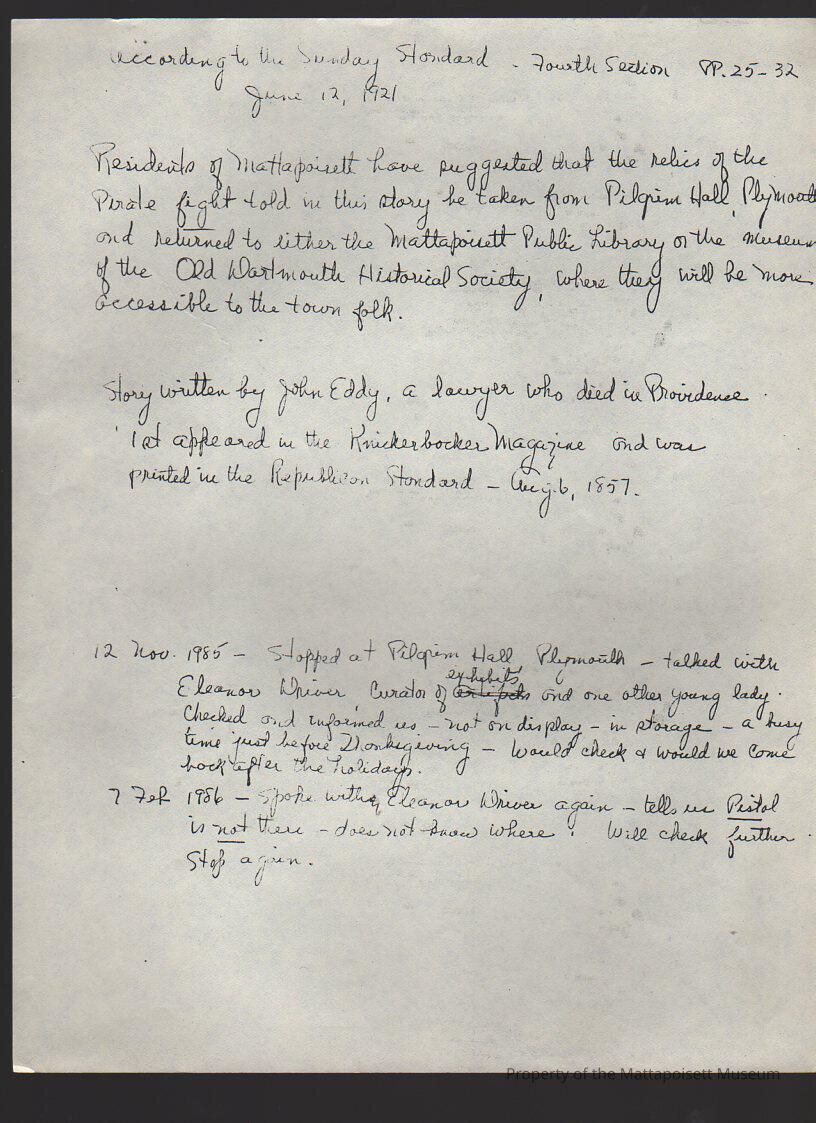 according to the Sunday Standard - Fourth Section PP. 25-32
June 12, 1921
Residents of Mattapoisett have suggested that the relics of the
Pirate fight told in this story be taken from Pilgrim Hall, Plymouth
and returned to either the Mattapoisett Public Library or the museum
of the Old Dartmouth Historical Society, where they will be more
accessible to the town folk.
Story written by John Eddy, a lawyer who died in Providence.
1st appeared in the Knickerbocker Magazine and was
printed in the Republican Standard - Aug. 6, 1857.
12 Nov. 1985 - Stopped at Pilgrim Hall, Plymouth - talked with
exhibits
Eleanor Driver Curator of artifacts and one other young lady.
Checked and informed us - not on display - in storage - a busy
time just before Thanksgiving - Would check & would we come
back after the holidays.
7 Feb 1986 - Spoke with Eleanor Driver again - tells us Pistol
is not there - does not know where! Will check further.
Stop again.
Property of the Mattapoisett Museum